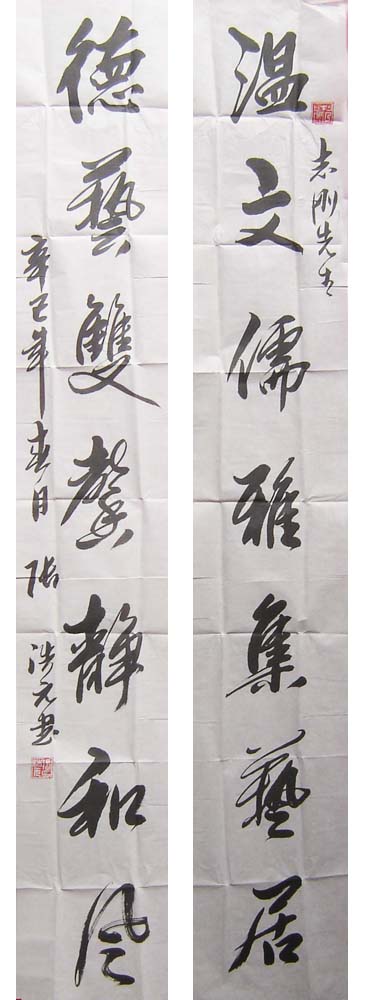 温文儒雅集藝居
志刚先生
德藝雙馨静和风
辛巳年春月 张浩元书